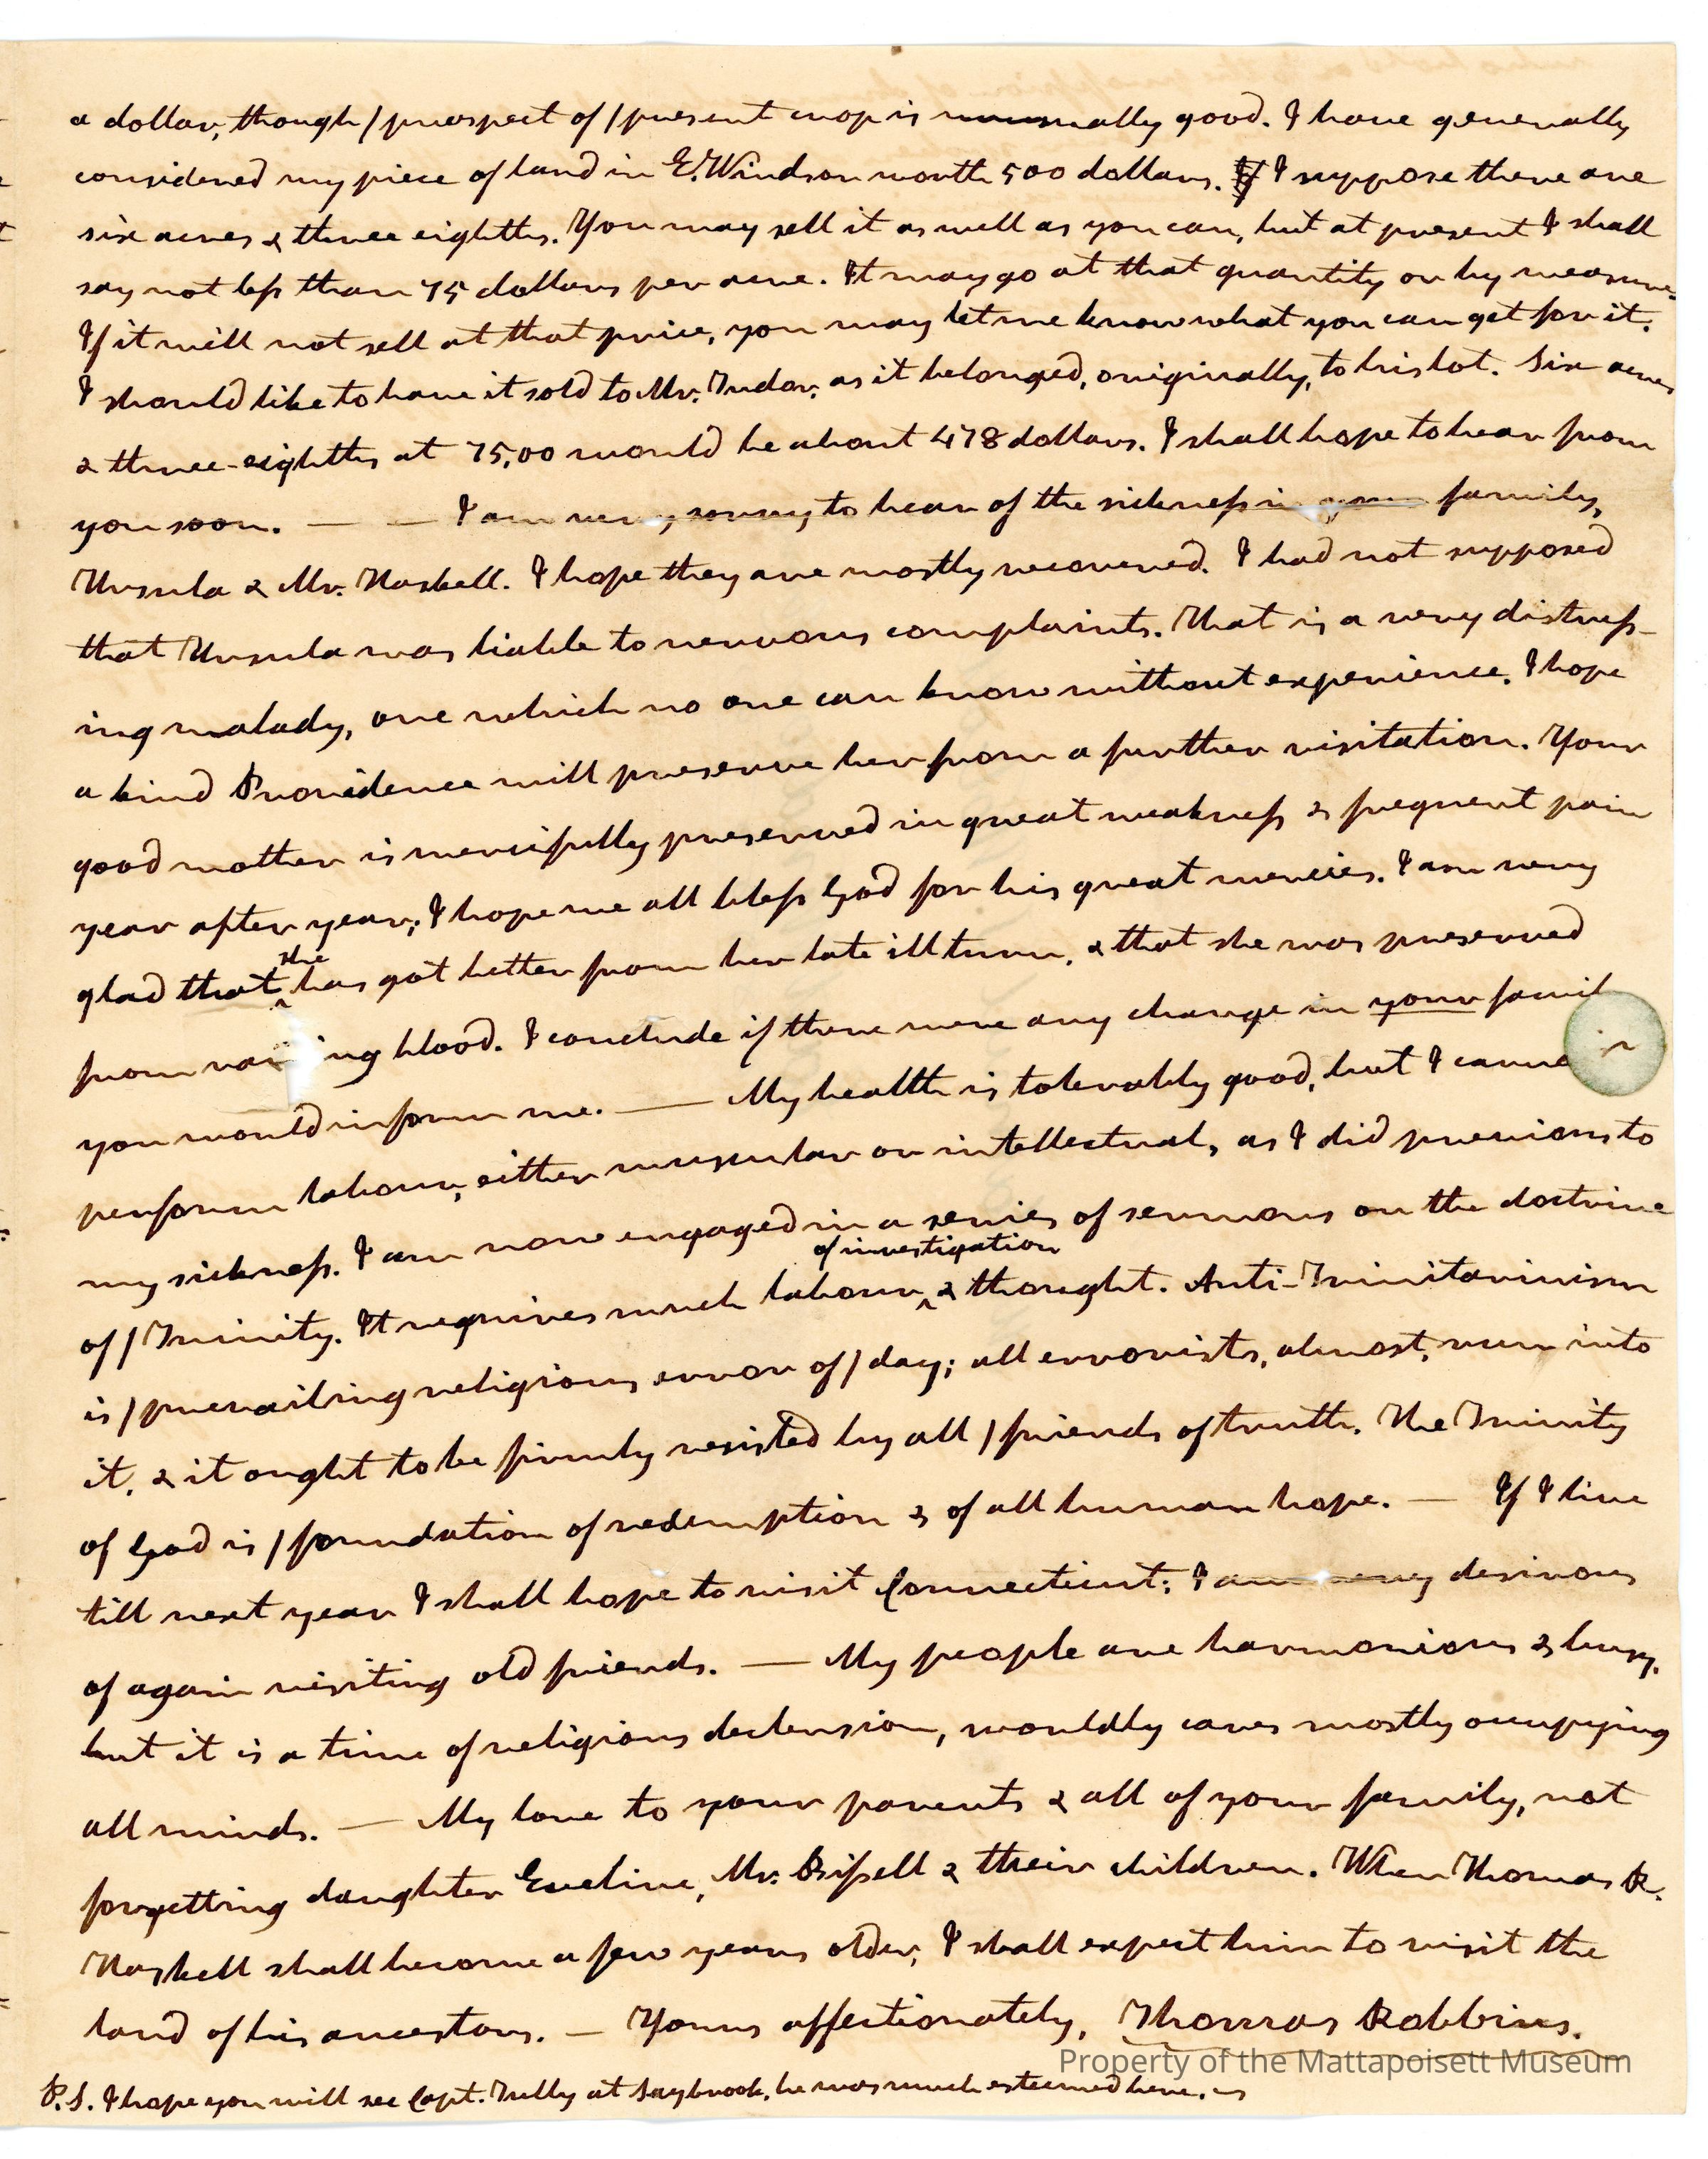 a dollar, though / prospect of / present crop is unusually good. I have generally
considered my piece of land in E. Windsor worth 500 dollars. I suppose there are
six acres & three eighths. You may sell it as well as you can, but at present I shall
say not less than 75 dollars per acre. It may go at that quantity or by measure.
If it will not sell at that price, you may let me know what you can get for it.
I should like to have it sold to Mr. Tudor, as it belonged, originally, to his lot. Six acres
& three-eighths at 75,00 would be about 478 dollars. I shall hope to hear from
you soon. — — I am very sorry to hear of the sickness in your family,
Ursula & Mr. Haskell. I hope they are mostly recovered. I had not supposed
that Ursula was liable to nervous complaints. That is a very distress-
ing malady, one which no one can know without experience. I hope
a kind Providence will preserve her from a further visitation. Your
good mother is mercifully preserved in great weakness & frequent pain
year after year; I hope we all bless God for his great mercies. I am very
glad that she has got better from her late ill turn, & that she was preserved
from raising blood. I conclude if there were any change in your famil
you would inform me. — My health is tolerably good, but I canno
perform labour, either muscular or intellectual, as I did previous to
my sickness. I am now engaged in a series of sermons on the doctrine
of / Trinity. It requires much labour of investigation & thought. Anti-Trinitarinism
is / prevailing religious error of / day; all errorists, almost, run into
it, & it ought to be firmly resisted by all / friends of truth. The Trinity
of God is / foundation of redemption & of all human hope. — If I live
till next year I shall hope to visit Connecticut; I am very desirous
of again visiting old friends. — My people are harmonious & busy,
but it is a time of religious declension, worldly cares mostly occupying
all minds. — My love to your parents & all of your family, not
forgetting daughter Eveline, Mr. Bissell & their children. When Thomas R.
Haskell shall become a few years older, I shall expect him to visit the
land of his ancestors. — Yours affectionately, Thomas Robbins.
Property of the Mattapoisett Museum
P.S. I hope you will see Capt. at Saybrook, he was much esteemed here.